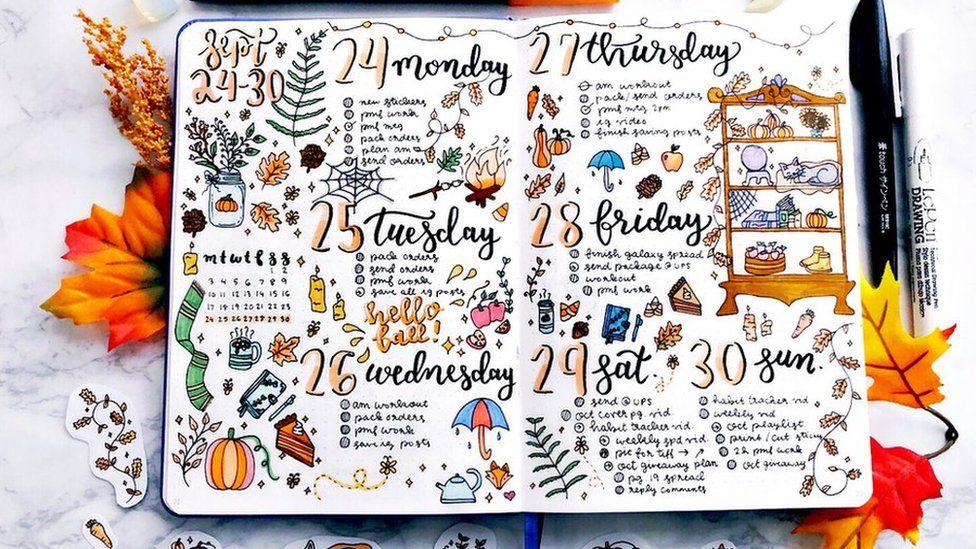 Sept
24-30
24 monday
new stickers
pmf work
pmf mtg
pack orders
plan am
send orders
25 Tuesday
pack orders
send orders
pmf work
save all ig posts
hello
fall!
m t w t f s s
1 2
3 4 5 6 7 8 9
10 11 12 13 14 15 16
17 18 19 20 21 22 23
24 25 26 27 28 29 30
26 wednesday
am workout
pack orders
pmf work
save ig posts
27 thursday
am workout
pack/send orders
pmf mtg 2pm
ig video
finish saving posts
28 friday
finish galaxy spread
send package @ UPS
workout
pmf work
29 sat.
send @ UPS
oct cover pg. vid.
habit tracker vid.
weekly spd vid.
pie for tiff → ↗
oct giveaway plan
pg 19 spread
reply comments
30 sun.
habit tracker vid
weekly vid
oct playlist
print/cut sticky
2h pmf work
oct giveaway
touch
DRAWING